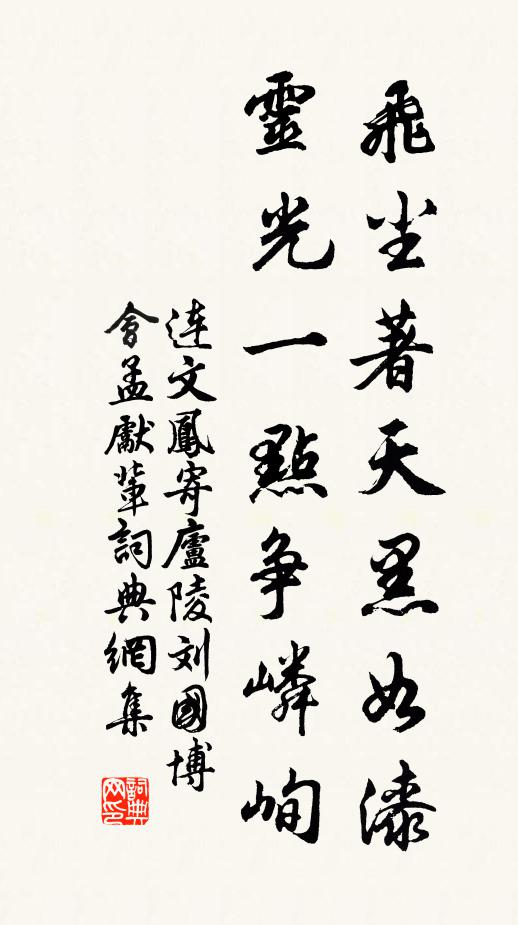 飛尘著天黑如漆
靈光一點争嶙峋
連文鳳寄廬陵刘國博
會孟獻輩詞典網集
詞典网印